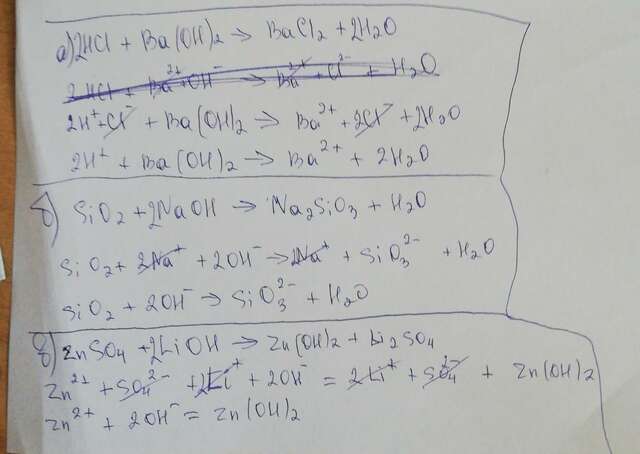 а) 2HCl + Ba(OH)₂ → BaCl₂ + 2H₂O
2HCl + Ba²⁺ + OH⁻ → Ba²⁺ + Cl²⁻ + H₂O
2H⁺ + Cl⁻ + Ba(OH)₂ → Ba²⁺ + 2Cl⁻ + 2H₂O
2H⁺ + Ba(OH)₂ → Ba²⁺ + 2H₂O
б) SiO₂ + 2NaOH → Na₂SiO₃ + H₂O
SiO₂ + 2Na⁺ + 2OH⁻ → 2Na⁺ + SiO₃²⁻ + H₂O
SiO₂ + 2OH⁻ → SiO₃²⁻ + H₂O
в) ZnSO₄ + 2LiOH → Zn(OH)₂ + Li₂SO₄
Zn²⁺ + SO₄²⁻ + 2Li⁺ + 2OH⁻ = 2Li⁺ + SO₄²⁻ + Zn(OH)₂
Zn²⁺ + 2OH⁻ = Zn(OH)₂